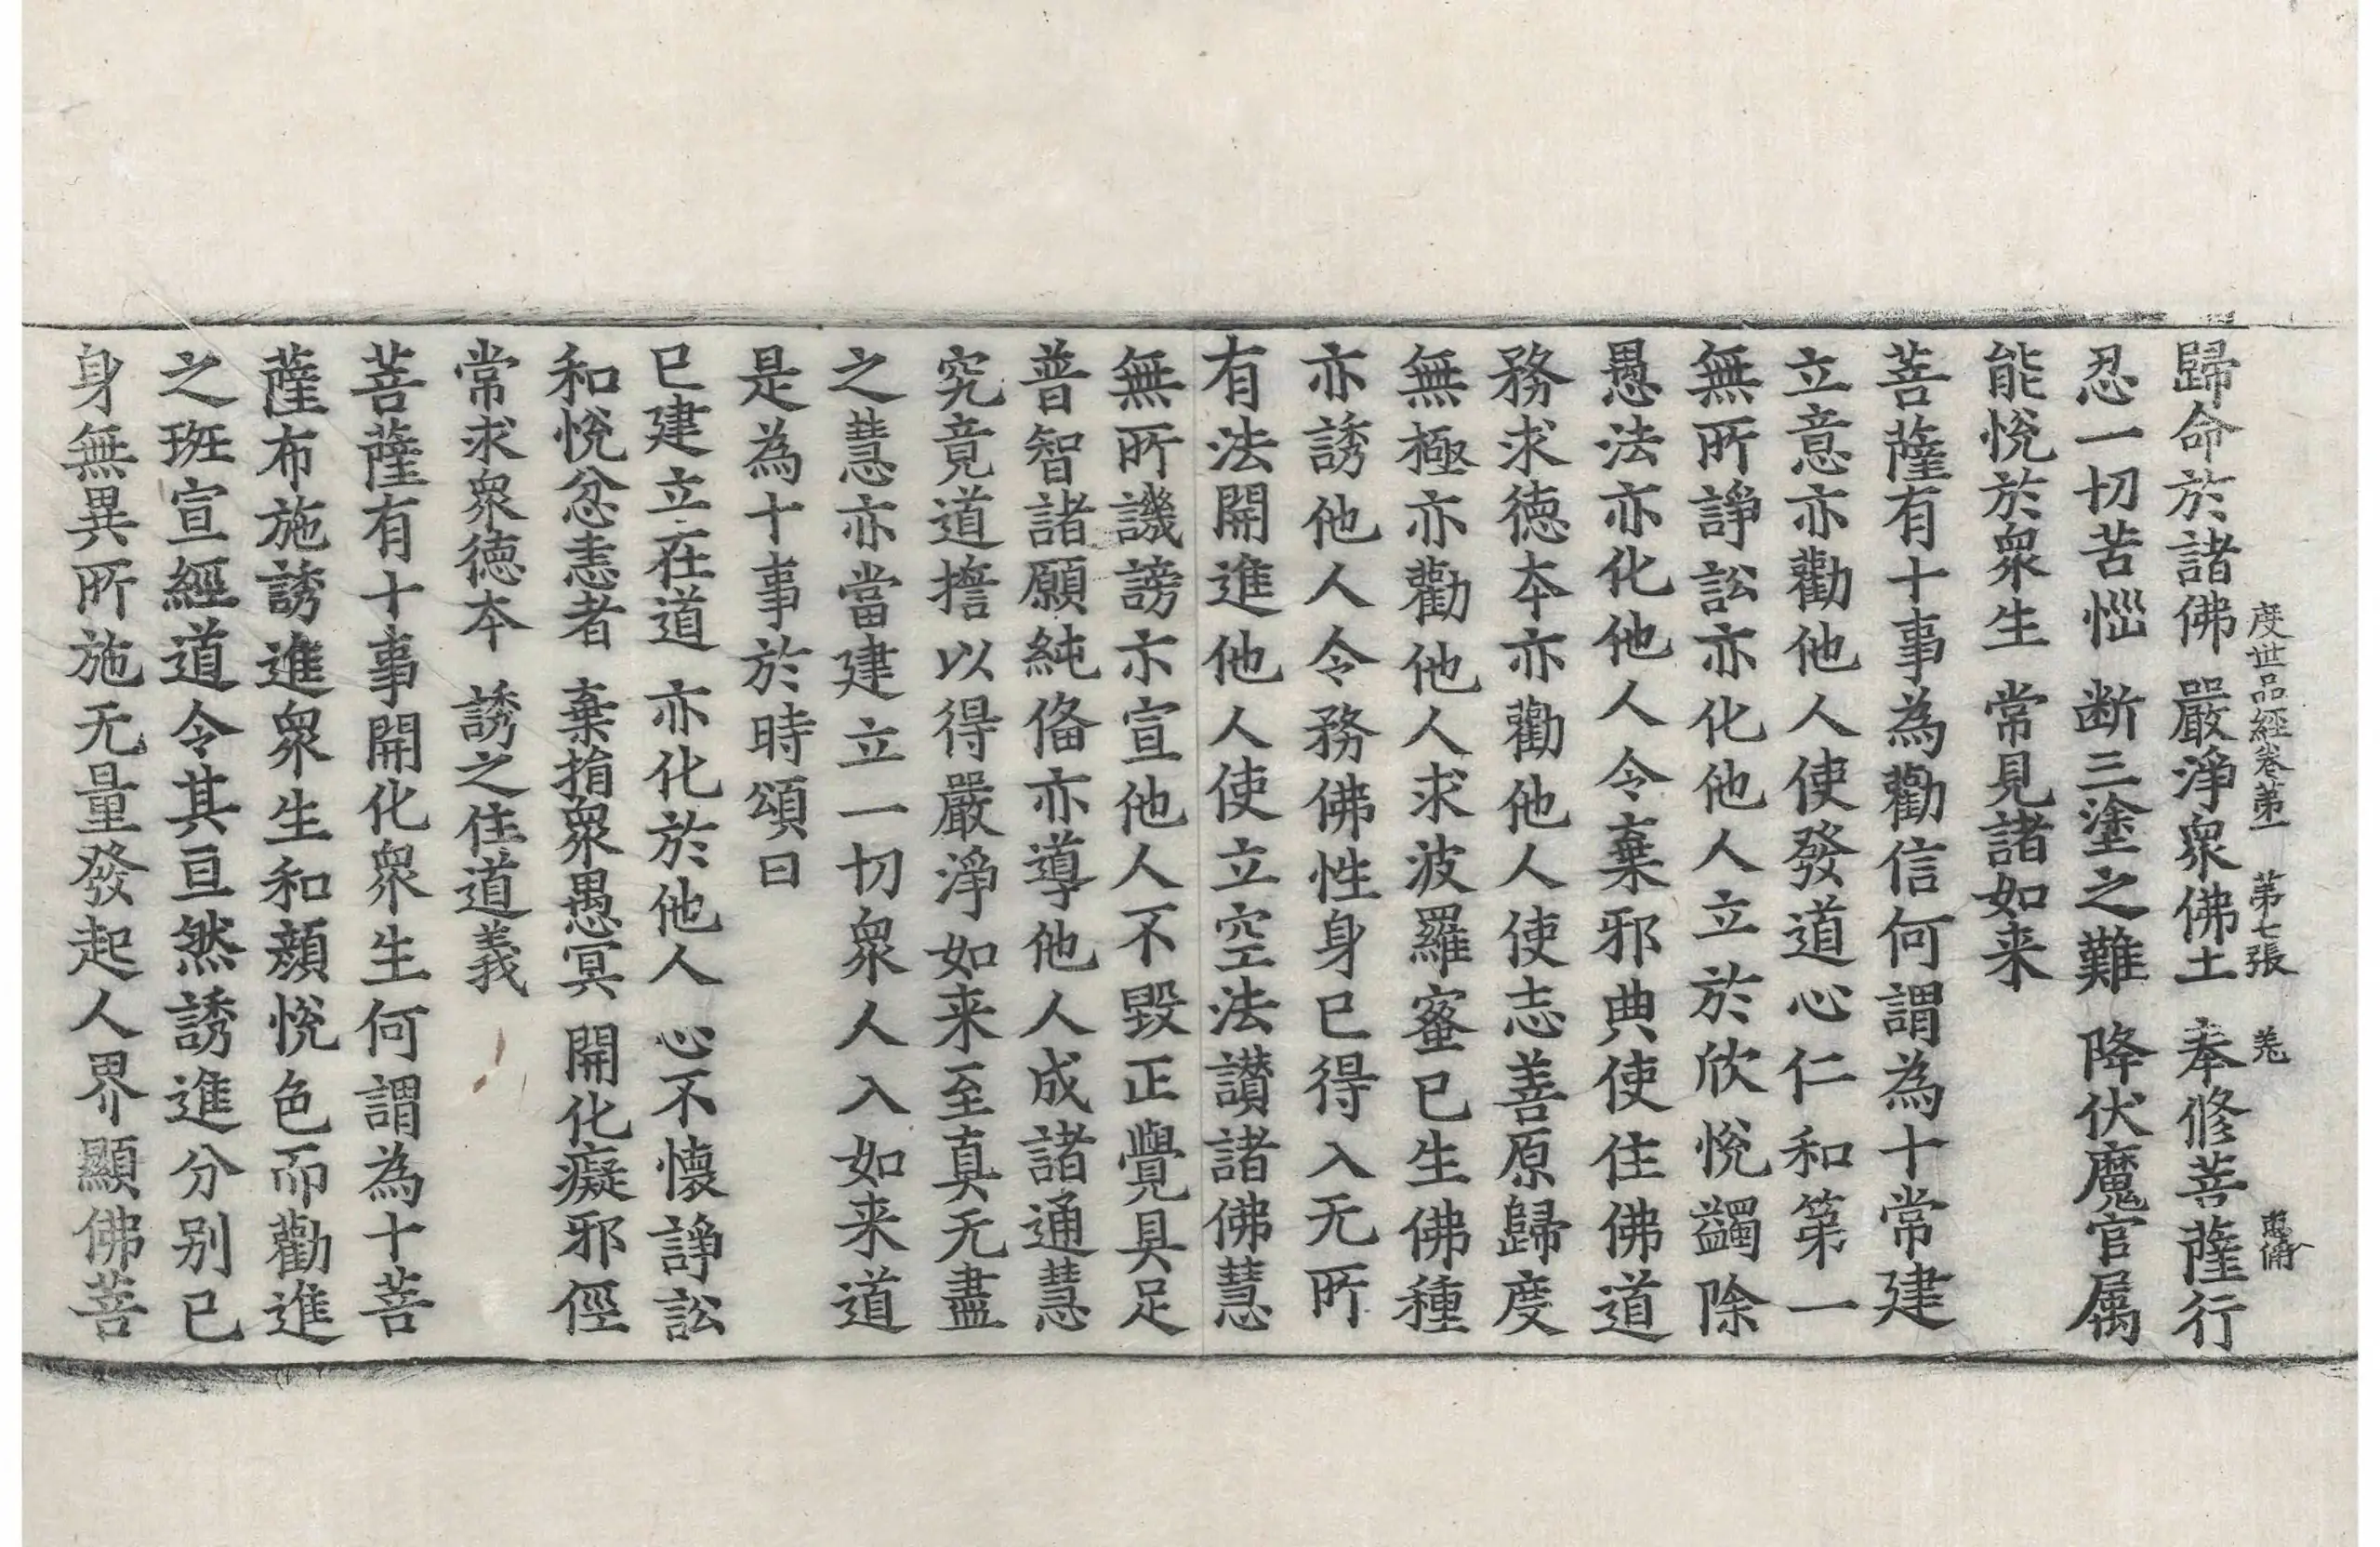 度世品経卷第一 第七張 羌
歸命於諸佛 嚴淨衆佛土 奉修菩薩行
忍一切苦惱 断三塗之難 降伏魔官属
能悅於衆生 常見諸如来
菩薩有十事為勸信何謂為十常建
立意亦勸他人使發道心仁和第一
無所諍訟亦化他人立於欣悅蠲除
愚法亦化他人令棄邪典使住佛道
務求德本亦勸他人使志善原歸度
無極亦勸他人求波羅蜜已生佛種
亦誘他人令務佛性身已得入无所
有法開進他人使立空法讃諸佛慧
無所譏謗亦宣他人不毀正覺具足
普智諸願純俻亦導他人成諸通慧
究竟道擔以得嚴淨如来至真无盡
之慧亦當建立一切衆人入如来道
是為十事於時頌曰
已建立在道 亦化於他人 心不懷諍訟
和悅忿恚者 棄捐衆愚冥 開化癡邪徑
常求衆德本 誘之住道義
菩薩有十事開化衆生何謂為十菩
薩布施誘進衆生和顔悅色而勸進
之班宣經道令其亘然誘進分别已
身無異所施无量發起人界顯佛菩